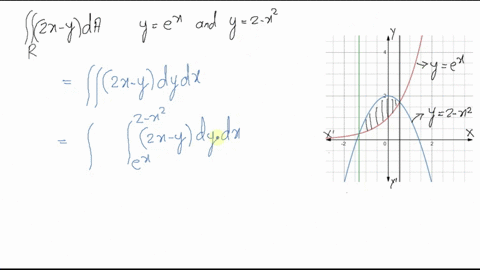 ∬(2x-y)dA   y=e^x and y=2-x^2
R
= ∬(2x-y)dydx
= ∫ ∫_{e^x}^{2-x^2} (2x-y)dydx
Y
y=e^x
2
y=2-x^2
X'
X
-2
0
2
Y'